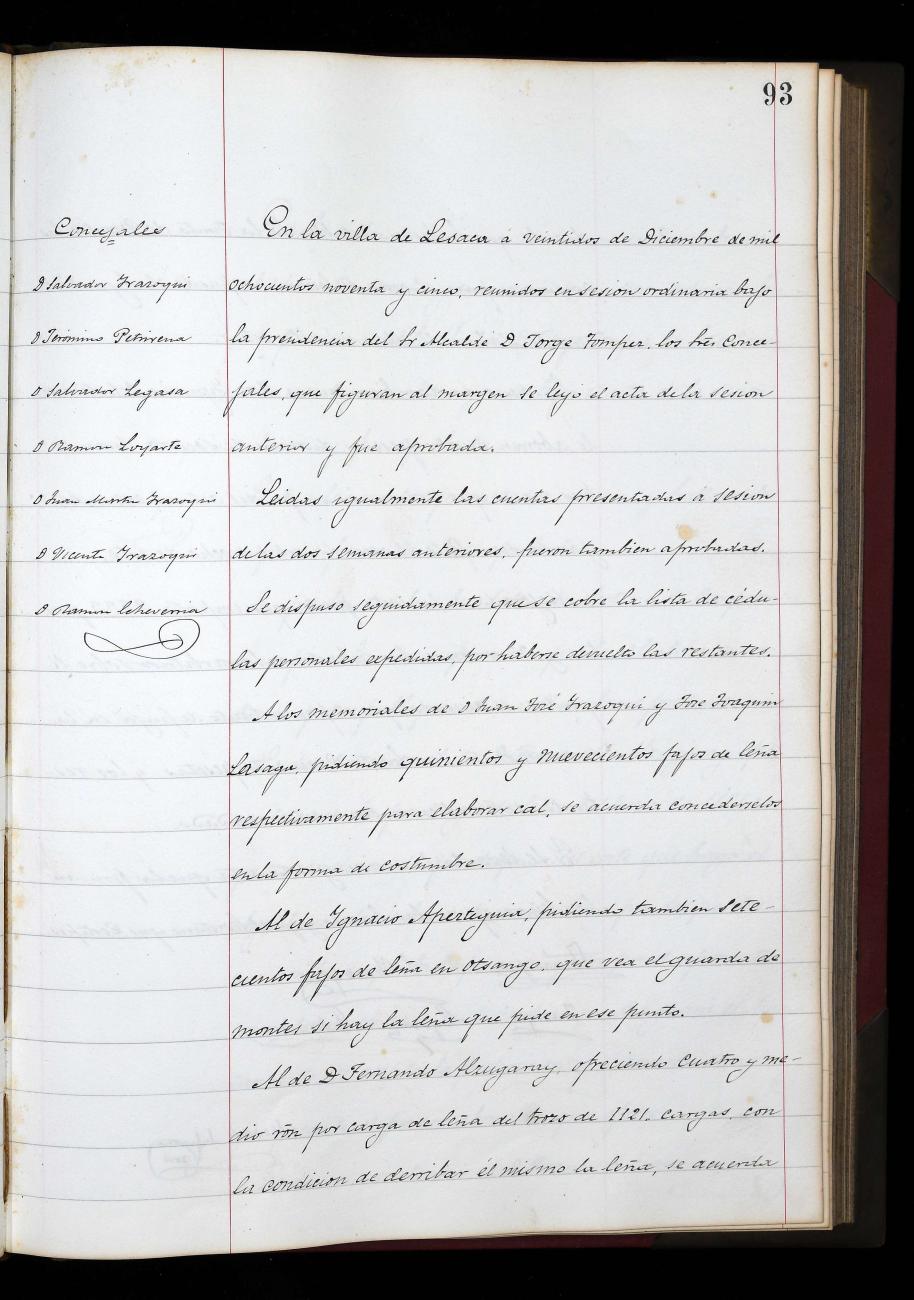 93
Concejales
D Salvador Irazoqui
D Jerónimo Petrirena
D Salvador Legasa
D Ramon Loyarte
D Juan Martin Irazoqui
D Vicente Irazoqui
D Ramon Echeverria
En la villa de Lesaca á veintidos de Diciembre de mil
ochocientos noventa y cinco, reunidos en sesion ordinaria bajo
la presidencia del Sr Alcalde D Jorge Tomper, los tres Conce-
jales, que figuran al margen se leyó el acta de la sesion
anterior y fue aprobada.
Leidas igualmente las cuentas presentadas á sesion
de las dos semanas anteriores, fueron tambien aprobadas.
Se dispuso seguidamente que se cobre la lista de cédu-
las personales expedidas, por haberse devuelto las restantes.
A los memoriales de D Juan José Irazoqui y José Joaquin
Lasaga, pidiendo quinientos y nuevecientos fajos de leña
respectivamente para elaborar cal, se acuerda concederselos
en la forma de costumbre.
Al de Ygnacio Apezteguia, pidiendo tambien sete-
cientos fajos de leña en Otsango, que vea el guarda de
montes si hay la leña que pide en ese punto.
Al de D Fernando Alzugaray, ofreciendo cuatro y me-
dio rón por carga de leña del trozo de 1121. cargas, con
la condicion de derribar él mismo la leña, se acuerda